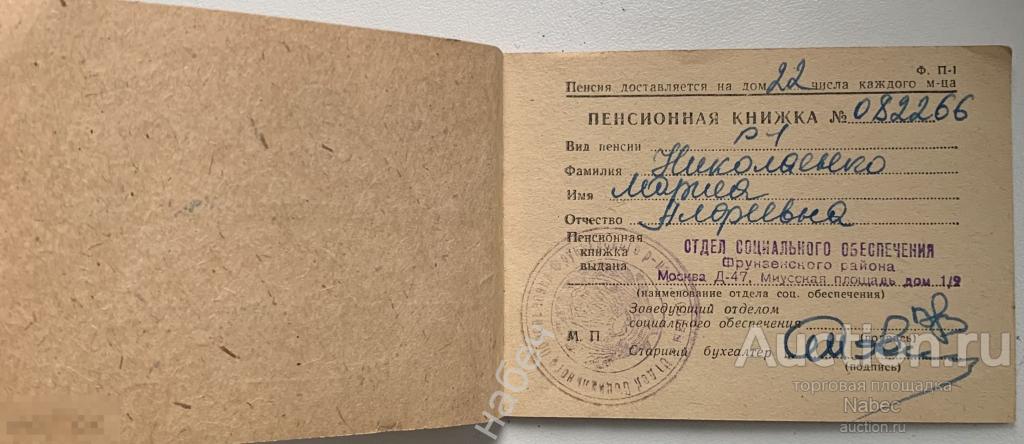 Ф. П-1
Пенсия доставляется на дом 22 числа каждого м-ца
ПЕНСИОННАЯ КНИЖКА № 082266
Вид пенсии
Фамилия Николаенко
Имя Мария
Отчество Алфеевна
Пенсионная книжка выдана
ОТДЕЛ СОЦИАЛЬНОГО ОБЕСПЕЧЕНИЯ
Фрунзенского района
Москва Д-47, Миусская площадь дом 1/2
(наименование отдела соц. обеспечения)
Заведующий отделом
социального обеспечения
М. П.
(подпись)
Старший бухгалтер
(подпись)
Набеч
Auction.ru
торговая площадка
Nabec
auction.ru